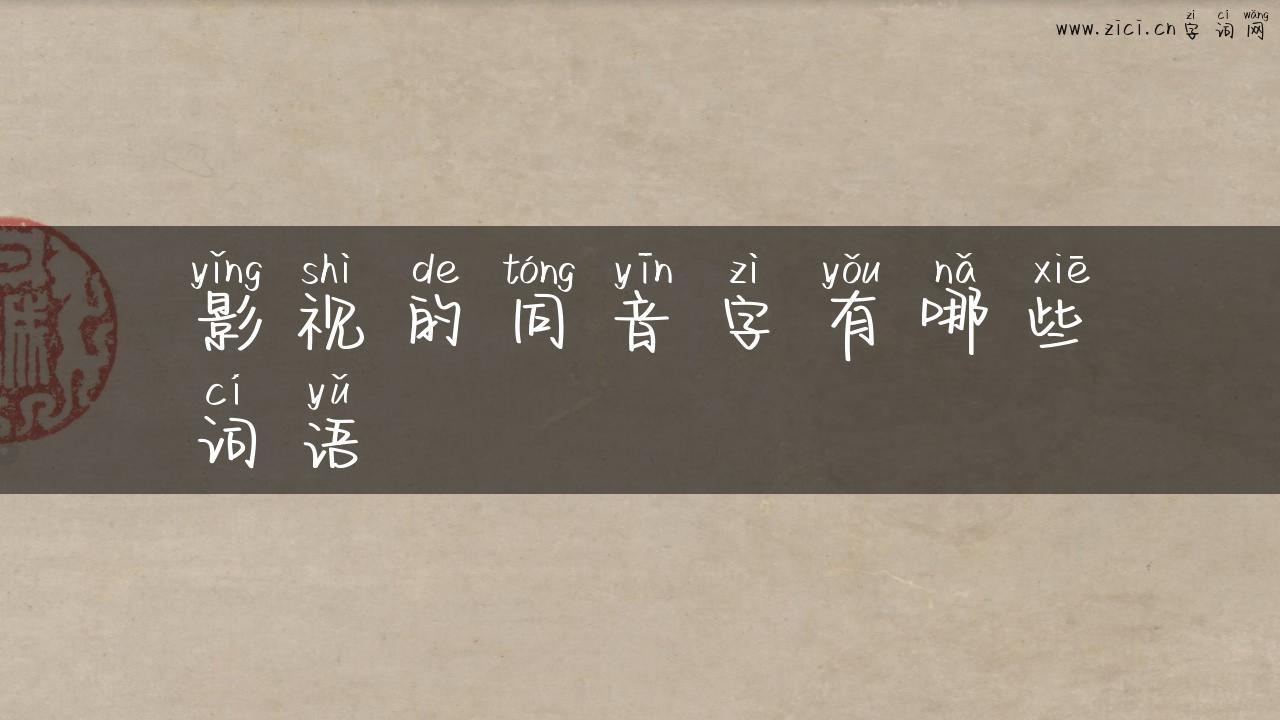 zì cí wǎng
www.zici.cn字词网
yǐng shì de tóng yīn zì yǒu nǎ xiē
影视的同音字有哪些
cí yǔ
词语